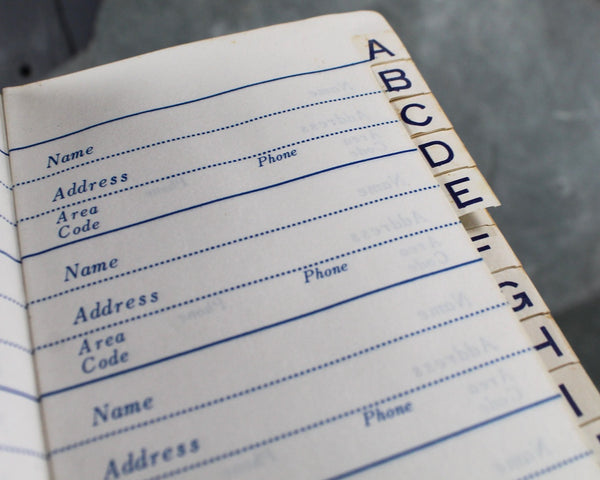 A
B
C
D
E
G
I
Name
Address
Phone
Area
Code
Name
Address
Phone
Area
Code
Name
Address
Phone